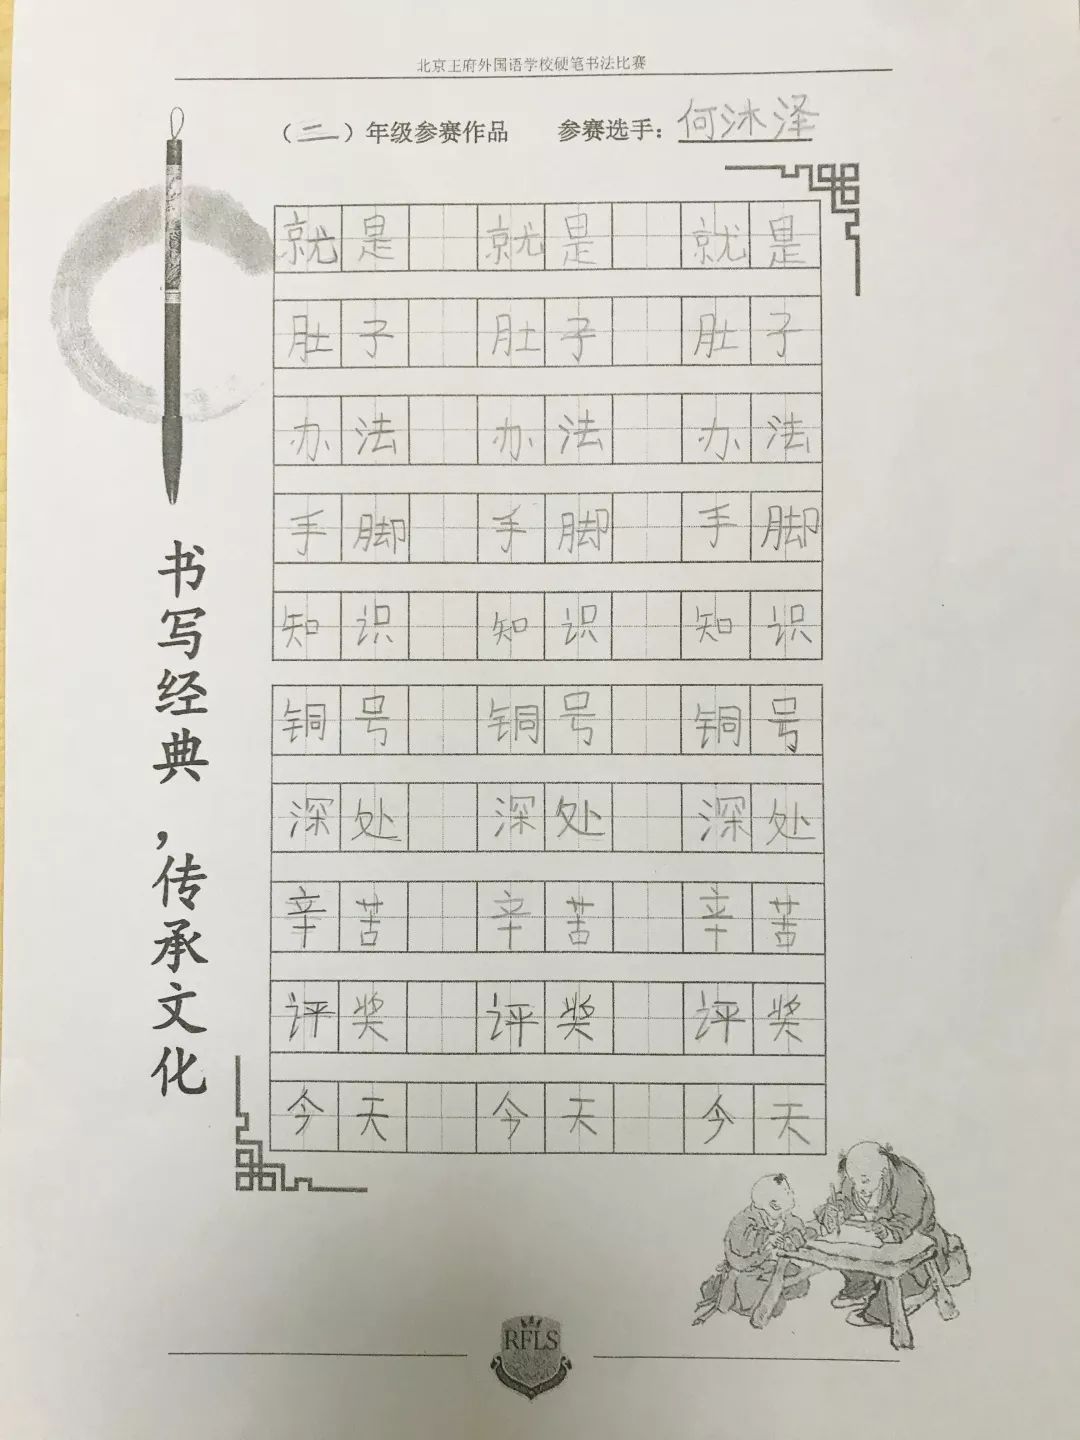 北京王府外国语学校硬笔书法比赛
（二）年级参赛作品 参赛选手：何沐泽
就是 就是 就是
肚子 肚子 肚子
办法 办法 办法
手脚 手脚 手脚
知识 知识 知识
铜号 铜号 铜号
深处 深处 深处
辛苦 辛苦 辛苦
评奖 评奖 评奖
今天 今天 今天
书写经典，传承文化
RFLS